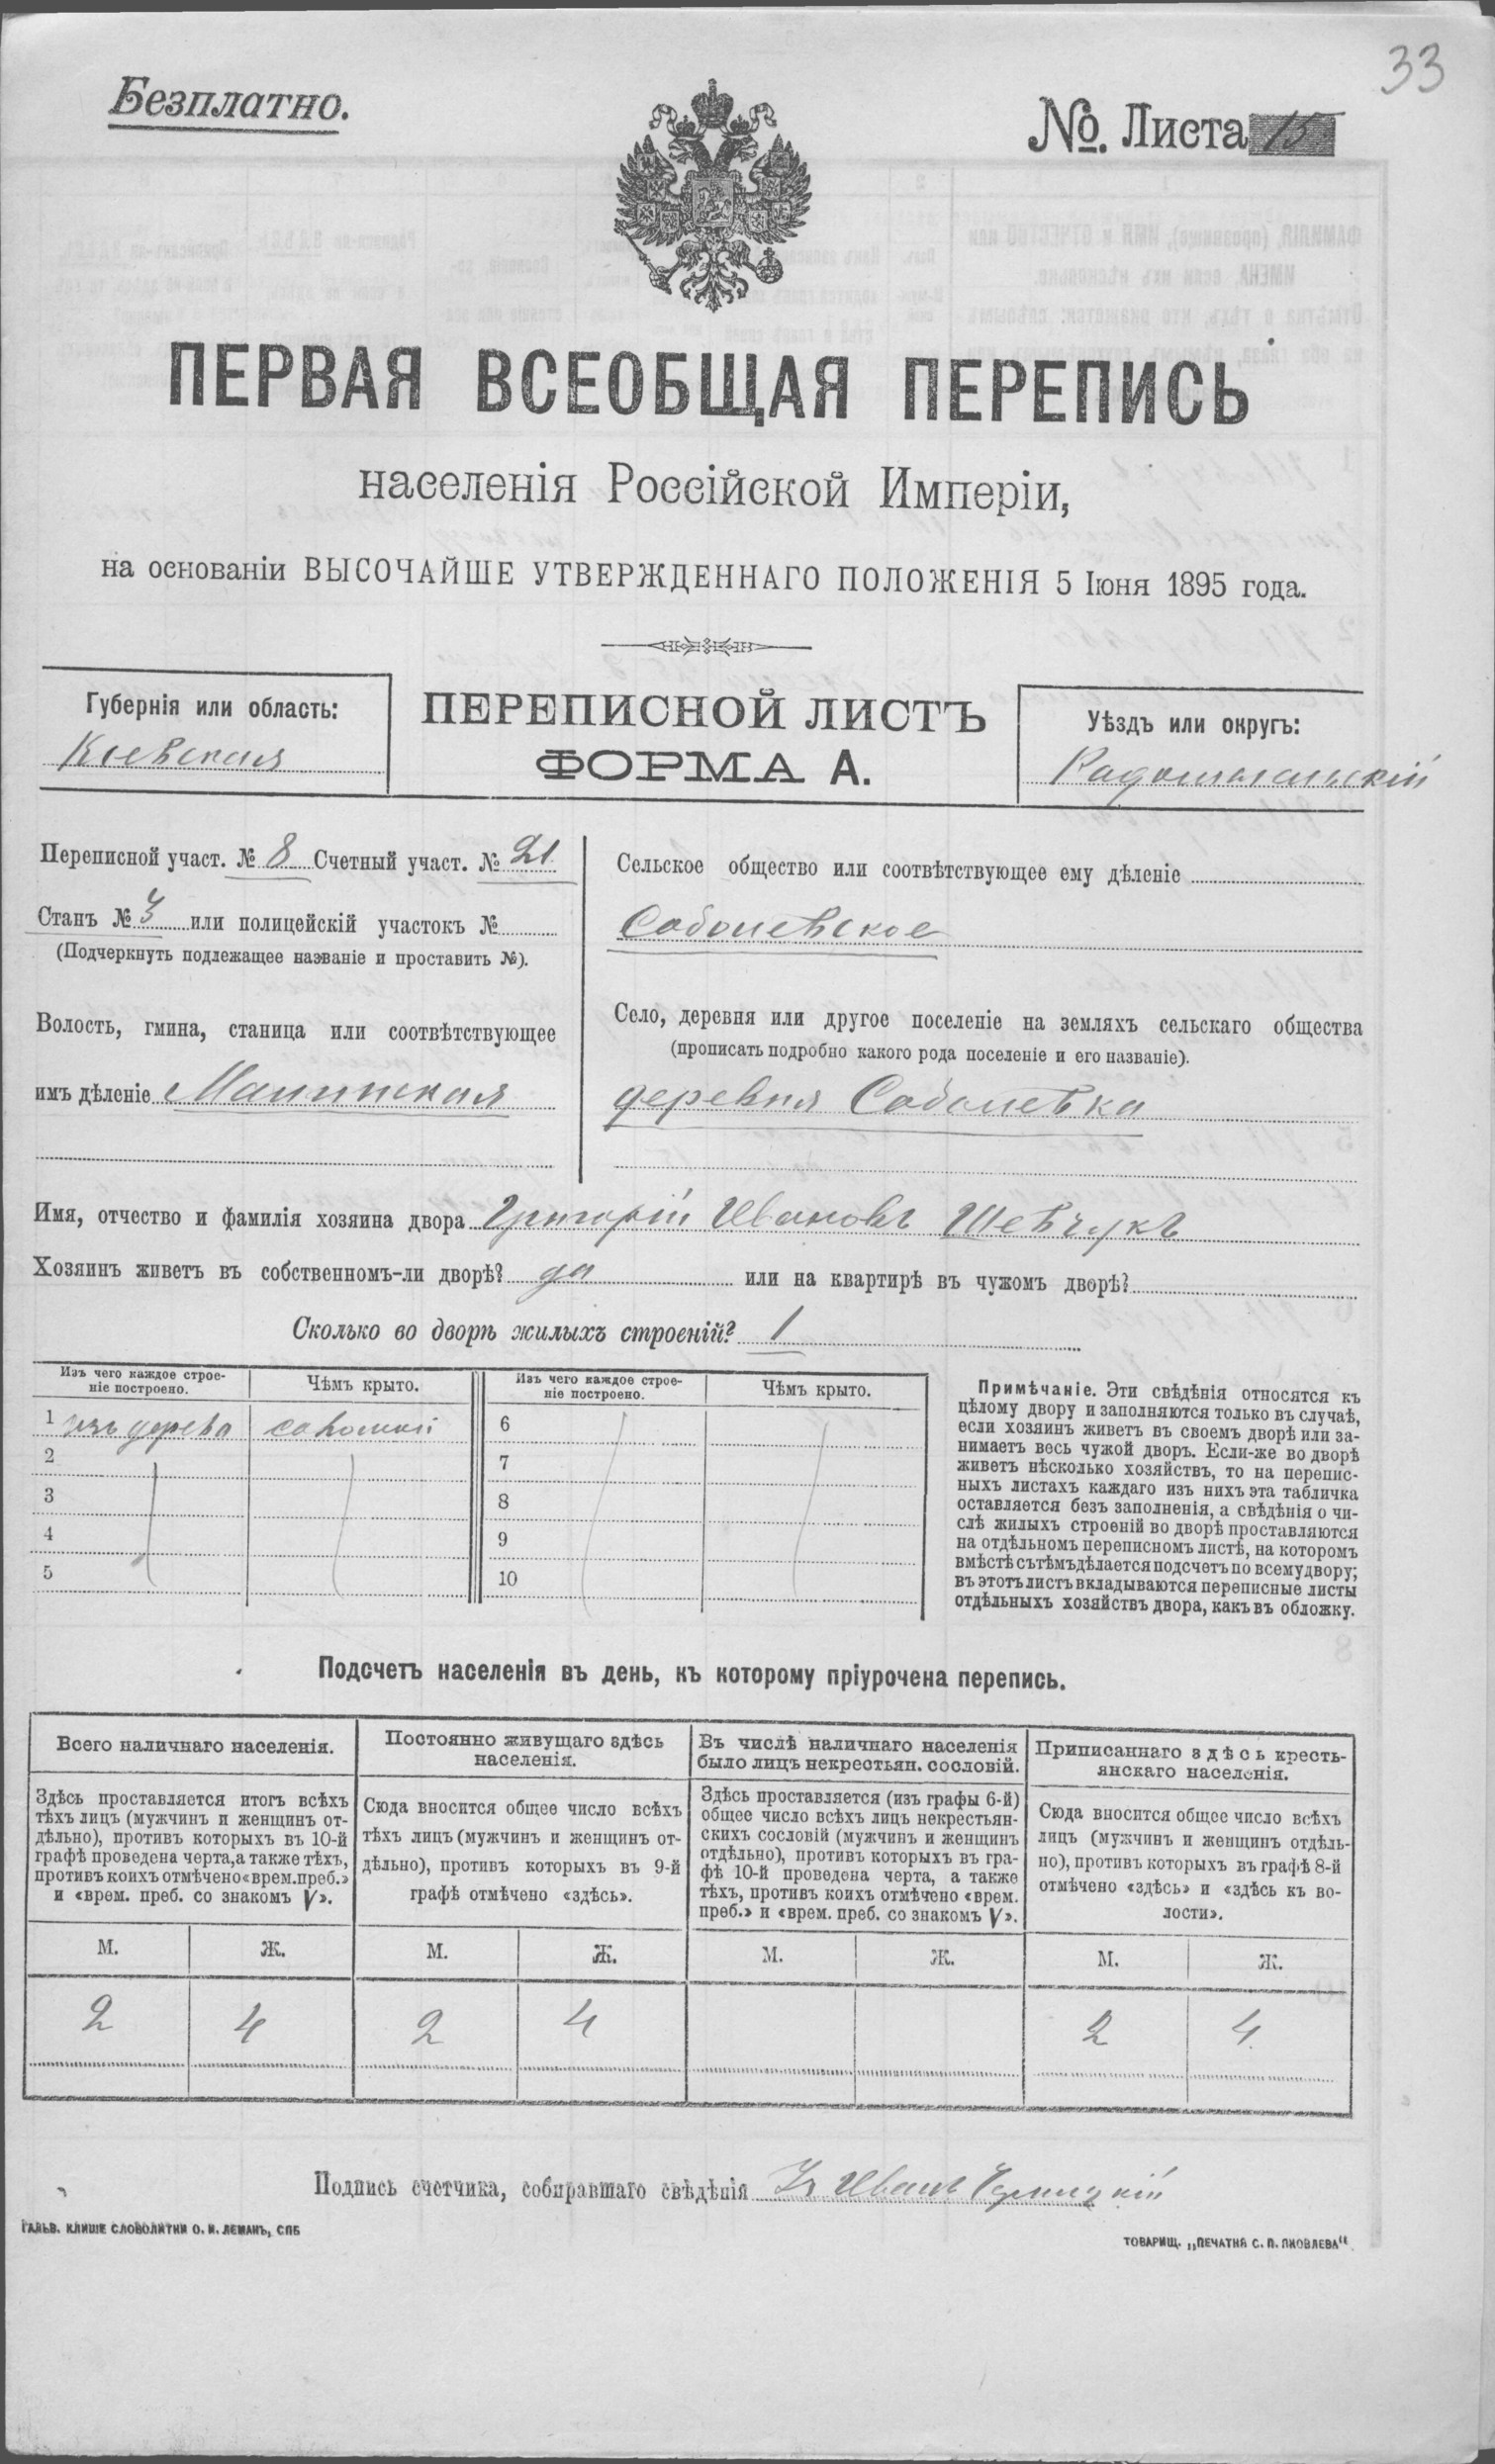 33
Безплатно.
№. Листа 15
ПЕРВАЯ ВСЕОБЩАЯ ПЕРЕПИСЬ
населенія Россійской Имперіи,
на основаніи ВЫСОЧАЙШЕ УТВЕРЖДЕННАГО ПОЛОЖЕНІЯ 5 Іюня 1895 года.
Губернія или область:
Кіевская
ПЕРЕПИСНОЙ ЛИСТЪ
ФОРМА А.
Уѣздъ или округъ:
Радомысльскій
Переписной участ. № 8 Счетный участ. № 21
Станъ № 3 или полицейскій участокъ №
(Подчеркнуть подлежащее названіе и проставить №).
Волость, гмина, станица или соотвѣтствующее
имъ дѣленіе Малинская
Сельское общество или соотвѣтствующее ему дѣленіе
Соболевское
Село, деревня или другое поселеніе на земляхъ сельскаго общества
(прописать подробно какого рода поселеніе и его названіе).
деревня Соболевка
Имя, отчество и фамилія хозяина двора Григорій Ивановъ Шевчукъ
Хозяинъ живетъ въ собственномъ-ли дворѣ? да или на квартирѣ въ чужомъ дворѣ?
Сколько во дворѣ жилыхъ строеній? 1
Изъ чего каждое строе-
ніе построено.
Чѣмъ крыто.
Изъ чего каждое строе-
ніе построено.
Чѣмъ крыто.
1 изъ дерева соломой 6
2 7
3 8
4 9
5 10
Примѣчаніе. Эти свѣдѣнія относятся къ
цѣлому двору и заполняются только въ случаѣ,
если хозяинъ живетъ въ своемъ дворѣ или за-
нимаетъ весь чужой дворъ. Если-же во дворѣ
живетъ нѣсколько хозяйствъ, то на перепис-
ныхъ листахъ каждаго изъ нихъ эта табличка
оставляется безъ заполненія, а свѣдѣнія о чи-
слѣ жилыхъ строеній во дворѣ проставляются
на отдѣльномъ переписномъ листѣ, на которомъ
вмѣстѣ съ тѣмъ дѣлается подсчетъ по всему двору;
въ этотъ листъ вкладываются переписные листы
отдѣльныхъ хозяйствъ двора, какъ въ обложку.
Подсчетъ населенія въ день, къ которому пріурочена перепись.
Всего наличнаго населенія.
Здѣсь проставляется итогъ всѣхъ
тѣхъ лицъ (мужчинъ и женщинъ от-
дѣльно), противъ которыхъ въ 10-й
графѣ проведена черта, а также тѣхъ,
противъ коихъ отмѣчено «врем. преб.»
и «врем. преб. со знакомъ V».
Постоянно живущаго здѣсь
населенія.
Сюда вносится общее число всѣхъ
тѣхъ лицъ (мужчинъ и женщинъ от-
дѣльно), противъ которыхъ въ 9-й
графѣ отмѣчено «здѣсь».
Въ числѣ наличнаго населенія
было лицъ некрестьян. сословій.
Здѣсь проставляется (изъ графы 6-й)
общее число всѣхъ лицъ некрестьян-
скихъ сословій (мужчинъ и женщинъ
отдѣльно), противъ которыхъ въ гра-
фѣ 10-й проведена черта, а также
тѣхъ, противъ коихъ отмѣчено «врем.
преб.» и «врем. преб. со знакомъ V».
Приписаннаго здѣсь кресть-
янскаго населенія.
Сюда вносится общее число всѣхъ
лицъ (мужчинъ и женщинъ отдѣль-
но), противъ которыхъ въ графѣ 8-й
отмѣчено «здѣсь» и «здѣсь къ во-
лости».
М. Ж. М. Ж. М. Ж. М. Ж.
2 4 2 4 2 4
Подпись счетчика, собиравшаго свѣдѣнія Иванъ
ГАЛЬВ. КЛИШЕ СЛОВОЛИТНИ О. И. ЛЕМАНЪ, СПБ
ТОВАРИЩ. „ПЕЧАТНЯ С. П. ЯКОВЛЕВА"